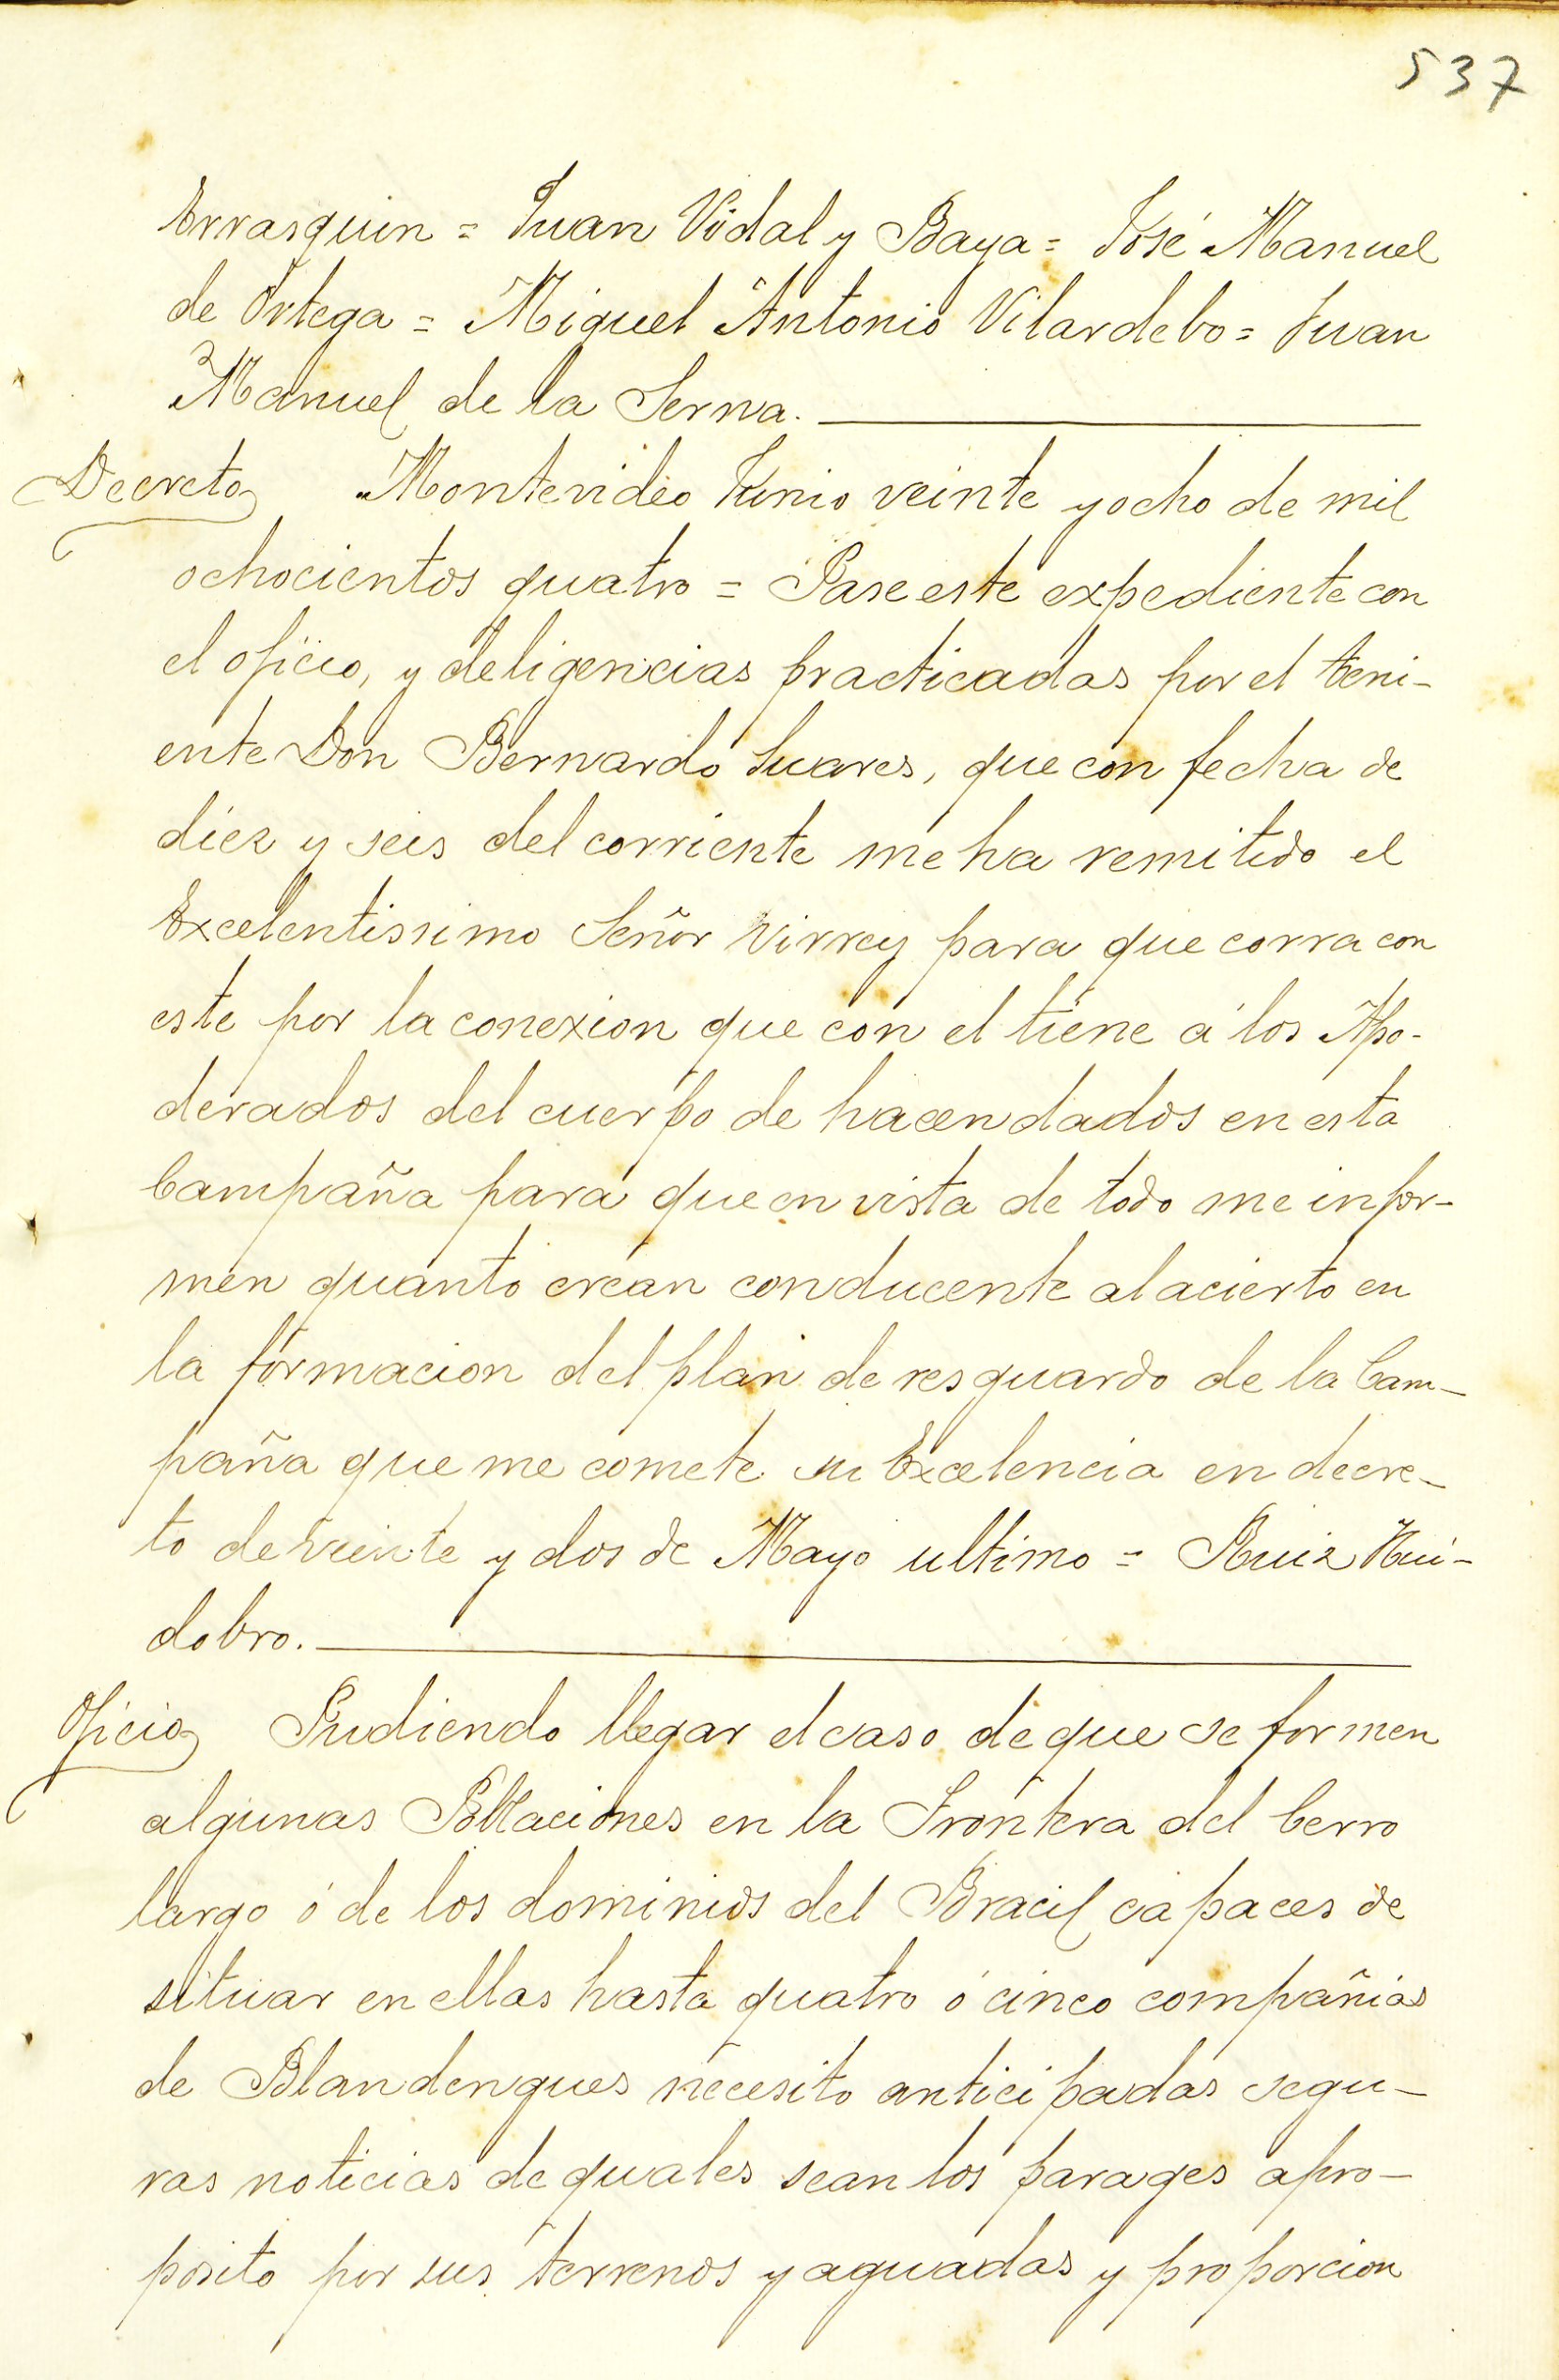 537
Errasquin = Juan Vidal y Baya = José Manuel
de Ortega = Miguel Antonio Vilardebo = Juan
Manuel de la Serna.
Decreto Montevideo Junio veinte y ocho de mil
ochocientos quatro = Pase este expediente con
el oficio, y deligencias practicadas por el teni-
ente Don Bernardo Suares, que con fecha de
diez y seis del corriente me ha remitido el
Excelentissimo Señor Virrey para que corra con
este por la conexion que con el tiene á los Apo-
derados del cuerpo de hacendados en esta
Campaña para que en vista de todo me infor-
men quanto crean conducente al acierto en
la formacion del plan de resguardo de la Cam-
paña que me comete su Excelencia en decre-
to de veinte y dos de Mayo ultimo = Ruiz Hui-
dobro.
Oficio Pudiendo llegar el caso de que se formen
algunas Poblaciones en la Frontera del Cerro
largo ó de los dominios del Bracil capaces de
situar en ellas hasta quatro ó cinco compañias
de Blandengues necesito anticipadas segu-
ras noticias de quales sean los parages apro-
posito por sus terrenos y aguadas y proporcion